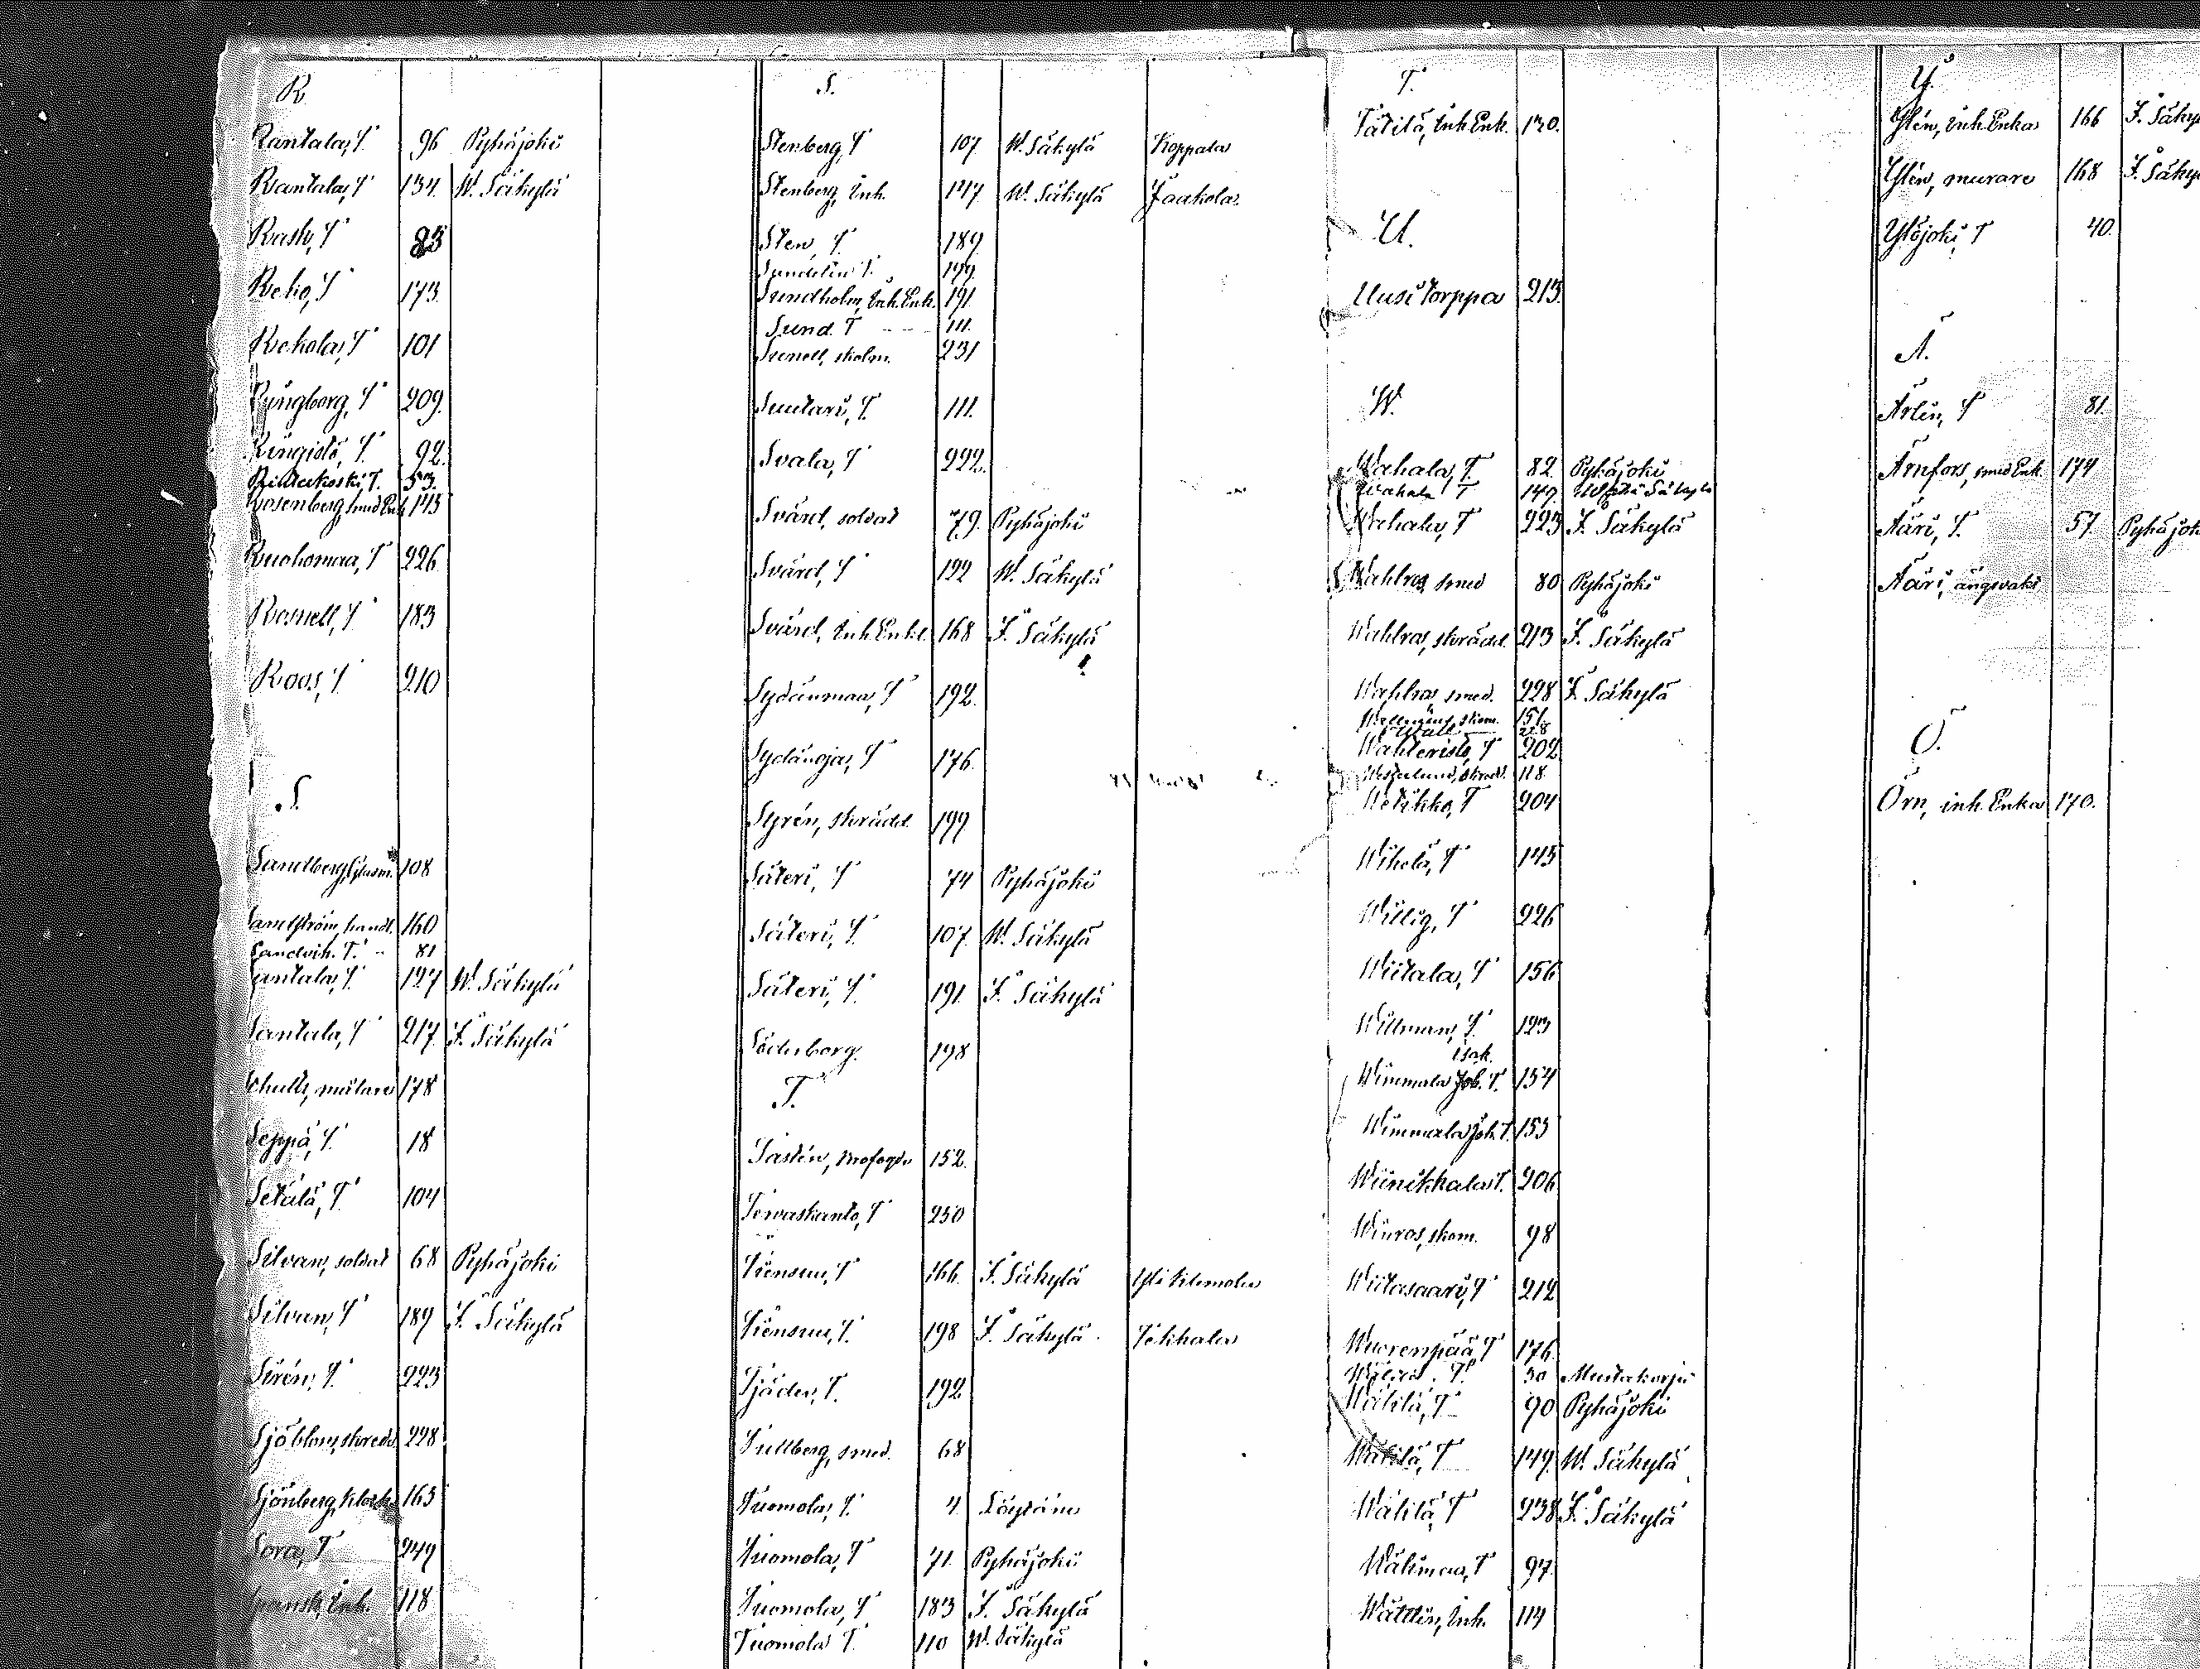 R.
Rantala, T. 96 Pyhäjoki
Rantala, T 134. W. Säkylä
Rask, T 85
Reko, T 173.
Rekola, T 101
Ringborg, T 209.
Ringistö, T. 92.
Rintakoski, T. 53.
Rosenberg, smed Enk 145
Ruohomaa, T 226
Rosnell, T 183
Roos, T 210
S.
Sandberg, 108
Sandström, handl. 160
Sandvik. T. 81
Santala, T. 127 W. Säkylä
Santala, T 217. I. Säkylä
Schultz, målare 178
Seppä, T. 18
Setälä, T 104
Silvan, soldat 68 Pyhäjoki
Silvan, T 189 I. Säkylä
Sirén, T. 223
Sjöblom, skrädd. 228
Sjönberg, klock 163
Sora, T 249
Spansk, Inh. 118
S.
Stenberg, T 107 W. Säkylä Koppala
Stenberg, Inh. 147 W. Säkylä Jaakola.
Sten, T. 189.
Sundelin T. 199.
Sundholm, Inh. Enk. 191
Sund. T 111.
Sunell, skolm. 231
Suutari, T. 111.
Svala, T 222.
Svärd, soldat 79. Pyhäjoki
Svärd, T 122 W. Säkylä
Svärd, Inh. Enkl. 168 I. Säkylä
Sydänmaa, T 192.
Sydänoja, T 176.
Syrén, skrädd. 199
Säteri, T 74 Pyhäjoki
Säteri, T. 107. W. Säkylä
Säteri, T. 191. I. Säkylä
Söderborg. 198
T.
Tastén, 152.
Tervaskanto, T 250
Tiensuu, T 166. I. Säkylä Yli Kilemola
Tiensuu, T. 198 I. Säkylä Iikkala
Tjäder, T. 192
Tullberg, smed. 68
Tuomola, T. 4. Löytäne
Tuomola, T 71. Pyhäjoki
Tuomola, T 183 I. Säkylä
Tuomola T. 110 W. Säkylä
T.
Tätilä, Inh. Enk. 130.
U.
Uusitorppa 213.
W.
Wahala, T. 82 Pyhäjoki
Wahala T 147 Säkylä
Wahala, T 223 I. Säkylä
Wahlros, smed 80 Pyhäjoki
Wahlros, skrädd. 213 I. Säkylä
Wahlros smed. 228 I. Säkylä
151.
Wall 218
Wahteristo, T 202
Westerlund, skrädd. 118.
Wetikko, T 204
Wihelä, T 145
Willig, T 226
Wiitala, T 156
Willman, T. 123
Isak.
Wimmala Joh. T. 154
Wimmala Joh. T. 153
Wiinikkala T. 206
Wiiros, skom. 98
Wiitasaari, T 212
Wuorenpää, T 176.
T. 30 Mustakorpi
Wälilä, T 90 Pyhäjoki
Wälilä, T 149. W. Säkylä
Wälilä, T 238 I. Säkylä
Wälimaa, T 97
Wättin, Inh. 114
Y.
Ylén, Inh. Enka 166 I. Säky
Ylén, murare 168 I. Säky
Ylöjoki, T 40.
Ä.
Ärlin, T 81.
Ärnfors, smed Enk. 174
Ääri, T. 57. Pyhäjok
Ääri, ängsvakt
Ö.
Örn, inh. Enka 170.